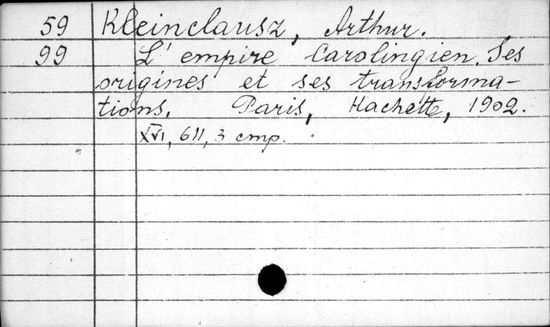 59 Kleinclausz, Arthur.
99 L'empire Carolingien. Ses
origines et ses transforma-
tions. Paris, Hachette, 1902.
XVI, 611, 3 cmp.